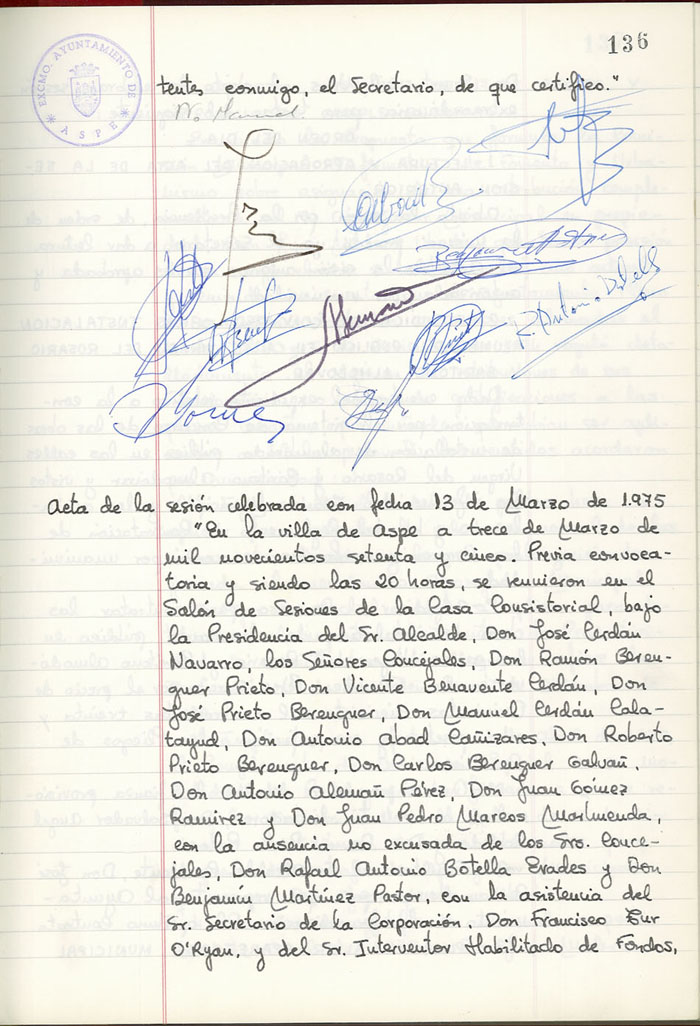 136
EXCMO. AYUNTAMIENTO DE ASPE
tentes conmigo, el Secretario, de que certifico."
Acta de la sesión celebrada con fecha 13 de Marzo de 1.975
"En la villa de Aspe a trece de Marzo de
mil novecientos setenta y cinco. Previa convoca-
toria y siendo las 20 horas, se reunieron en el
Salón de Sesiones de la Casa Consistorial, bajo
la Presidencia del Sr. Alcalde, Don José Cerdán
Navarro, los Señores Concejales, Don Ramón Beren-
guer Prieto, Don Vicente Benavente Cerdán, Don
José Prieto Berenguer, Don Manuel Cerdán Cala-
tayud, Don Antonio Abad Cañizares, Don Roberto
Prieto Berenguer, Don Carlos Berenguer Galvañ,
Don Antonio Alemañ Pérez, Don Juan Gómez
Ramirez y Don Juan Pedro Marcos
con la ausencia no excusada de los Srs. Conce-
jales, Don Rafael Antonio Botella Erades y Don
Benjamín Martínez Pastor, con la asistencia del
Sr. Secretario de la Corporación, Don Francisco Zur
O'Ryan, y del Sr. Interventor Habilitado de Fondos,